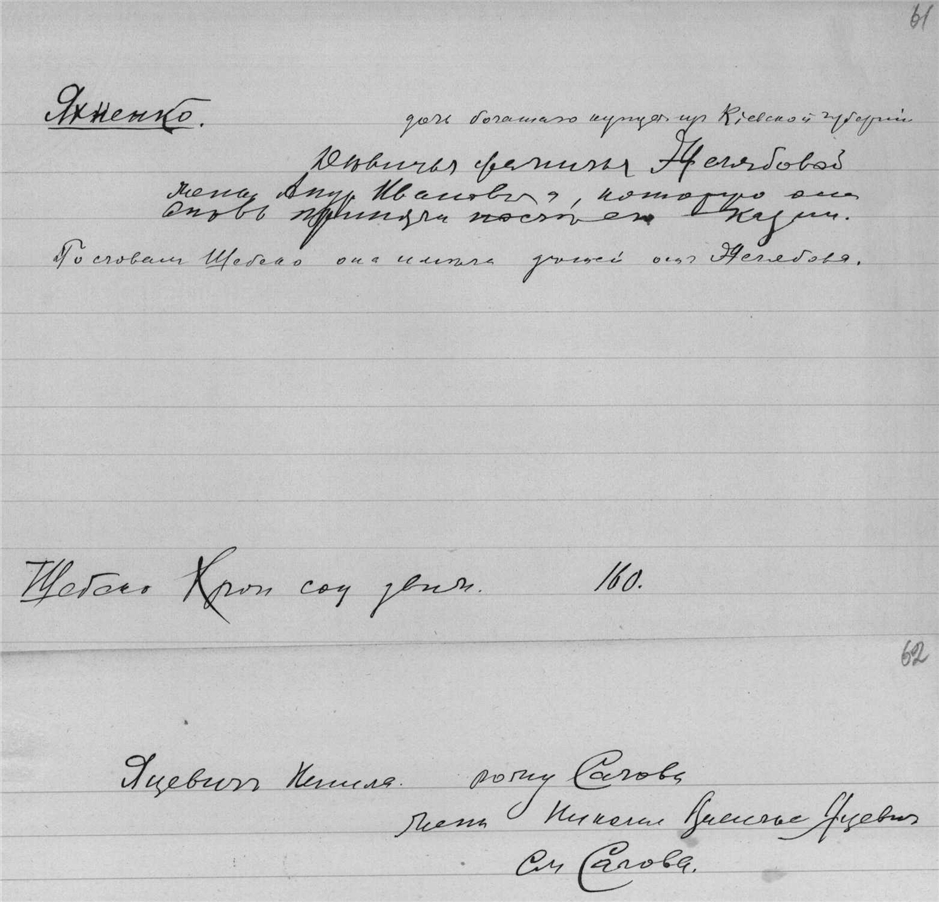 61
Яхненко. дочь богатаго купца из Кіевской губерніи
Дѣвичья фамилія Желябовой
жены Андр Ивановича, которую она
вновь приняла послѣ его казни.
По словам Шебеко она имѣла дѣтей от Желябова.
Шебеко Хрон соц движ. 160.
62
Яцевичъ Неонила. рожд Салова
жена Николая Васильев Яцевич
См Салова.